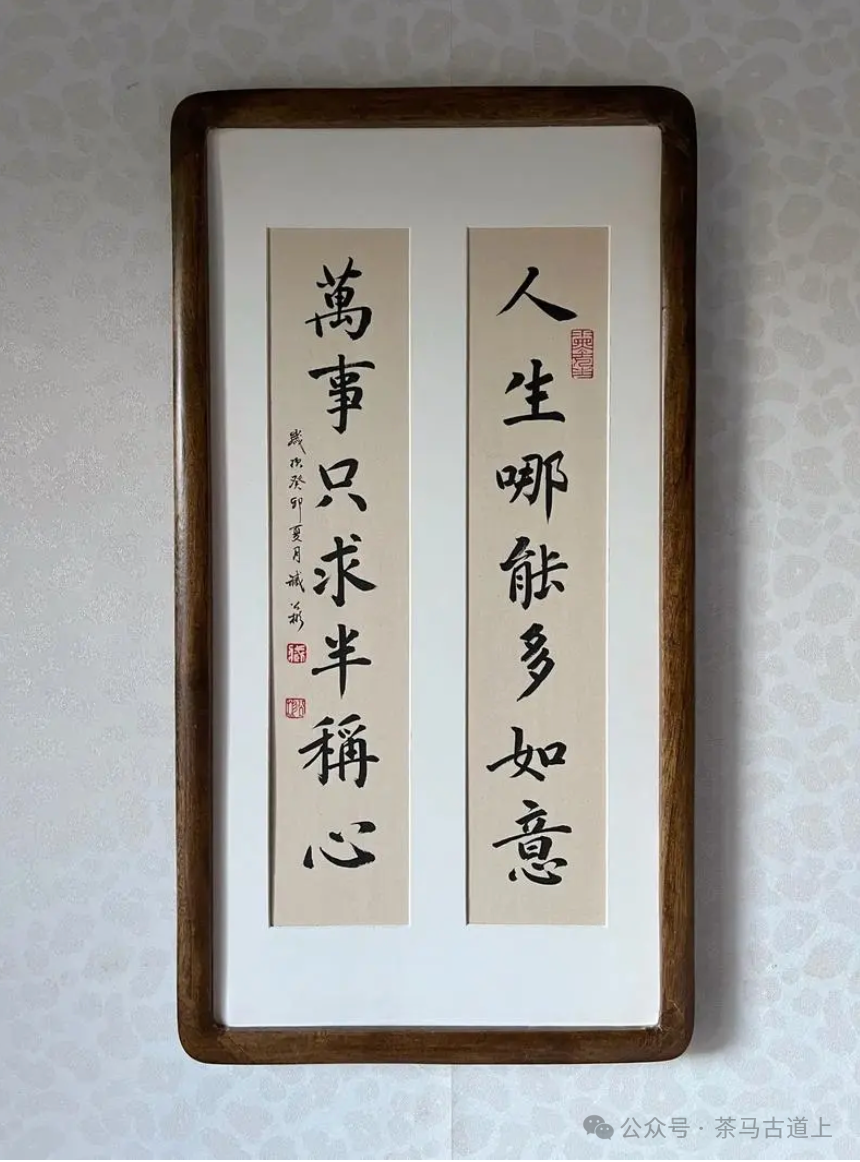 人生哪能多如意
萬事只求半稱心
歲次癸卯夏月
公众号 · 茶马古道上